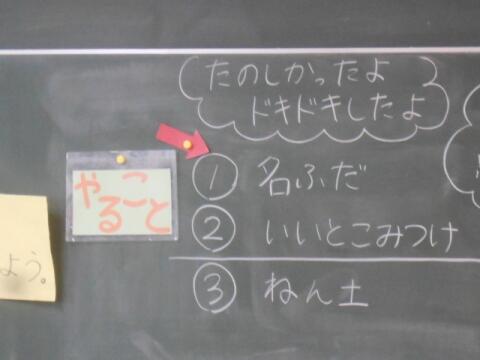 たのしかったよ
ドキドキしたよ
やること
① 名ふだ
② いいとこみつけ
③ ねん土
よう。